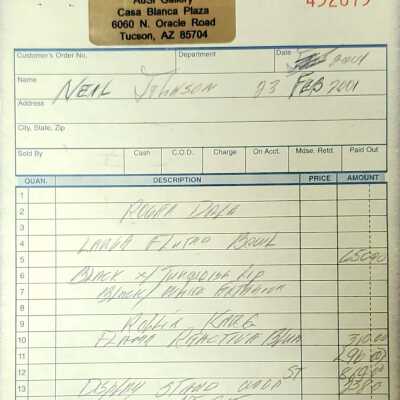 Gallery
Casa Blanca Plaza
6060 N. Oracle Road
Tucson, AZ 85704
Customer's Order No.
Department
Date
2001
Name
NEIL JOHNSON 23 FEB 2001
Address
City, State, Zip
Sold By
Cash
C.O.D.
Charge
On Acct.
Mdse. Retd.
Paid Out
QUAN.
DESCRIPTION
PRICE
AMOUNT
1
2
ROGER
3
4
LARGE FLUTED BOWL
5
650.00
6
BLACK W/ TURQUOISE LIP
7
BLACK/WHITE EXTERIOR
8
9
ROLLIN KARG
10
FLAME REACTIVE 310.00
11
12
ST
13
DISPLAY STAND